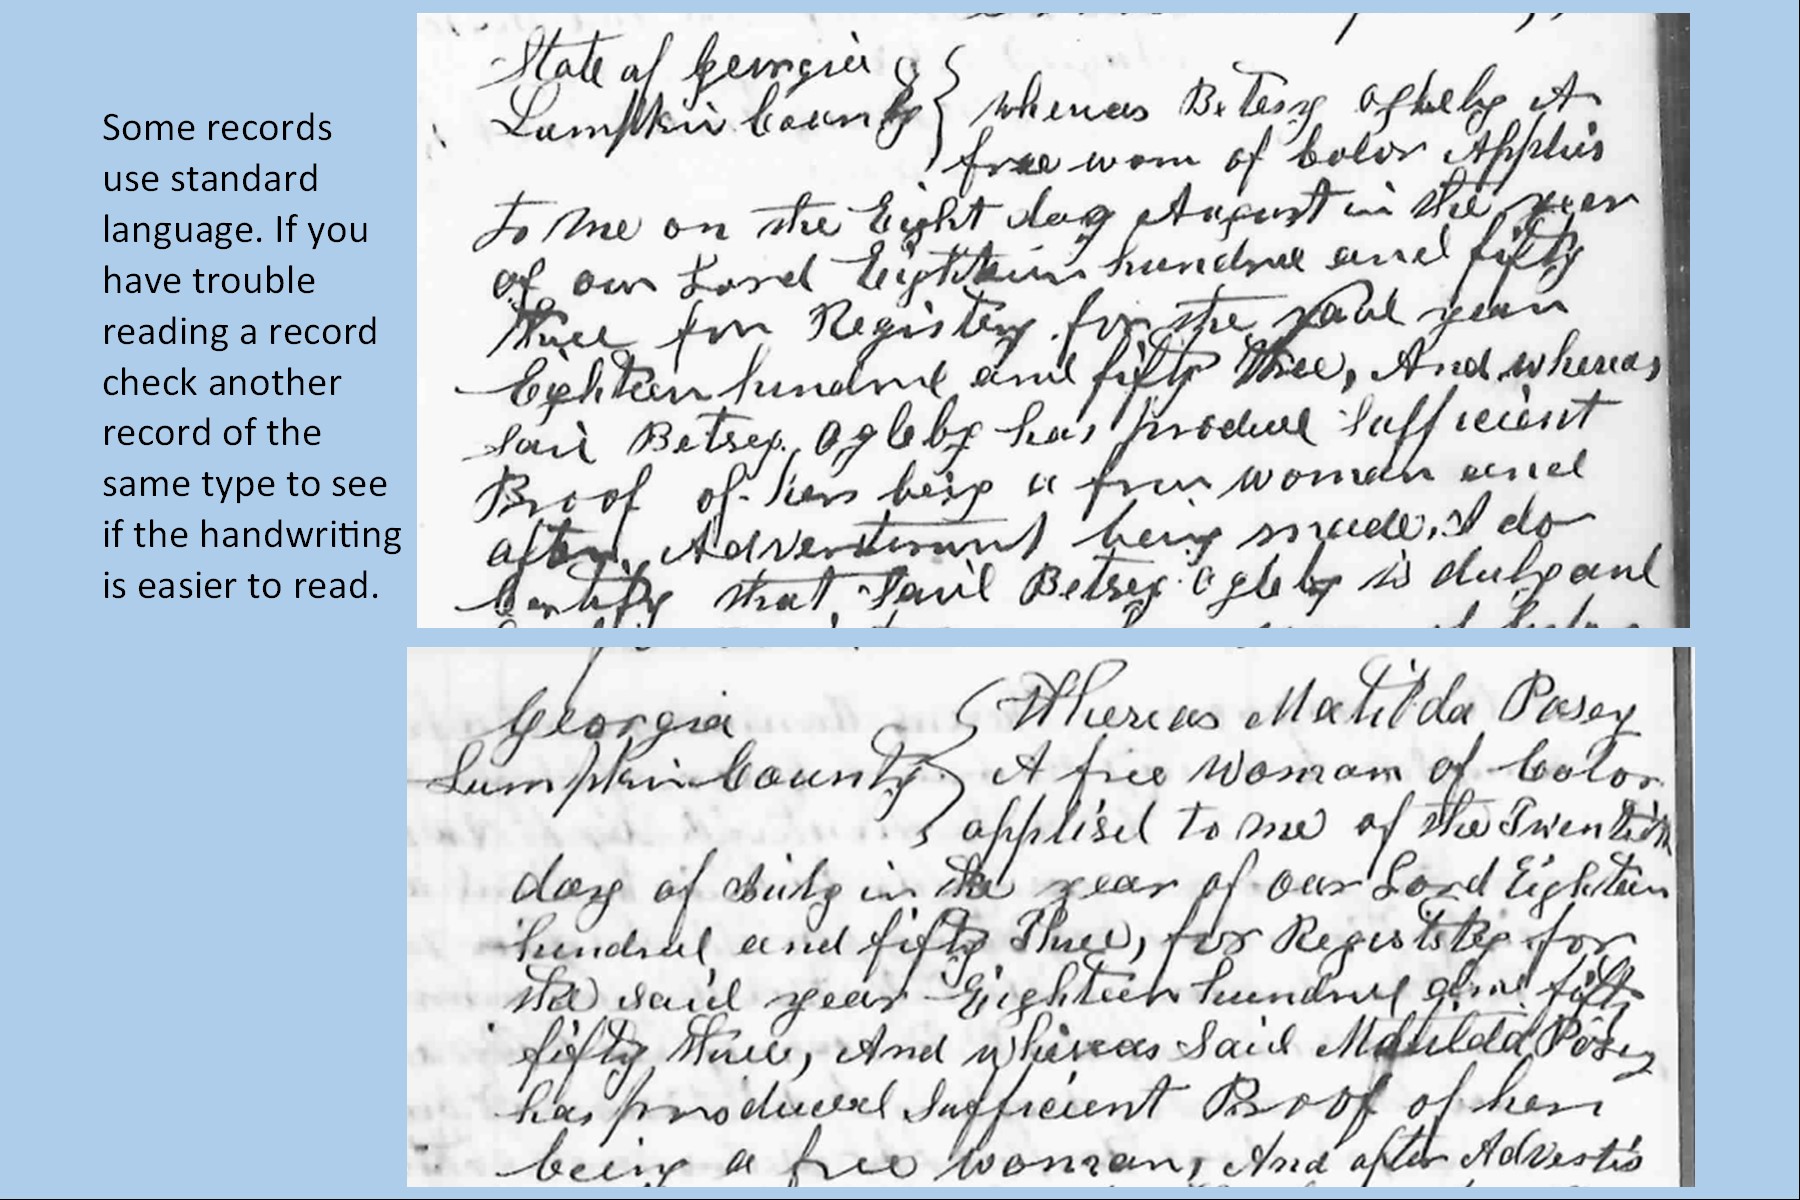 Some records
use standard
language. If you
have trouble
reading a record
check another
record of the
same type to see
if the handwriting
is easier to read.
State of Georgia
Lumpkin County } whereas Betsey Ogleby A
free wom of Color Applies
to me on the Eight day August in the year
of our Lord Eighteen hundred and fifty
three for Registery for the said year
Eighteen hundred and fifty three, And whereas
said Betsey Ogleby has produced Sufficient
Proof of hers being a free woman and
after Advertisment being made, I do
Certify that said Betsey Ogleby is duly and
Georgia } Whereas Matilda Posey
Lumpkin County } A free Woman of Color
applied to me of the Twentieth
day of July in the year of our Lord Eighteen
hundred and fifty Three, for Registery for
the said year Eighteen hundred and fifty
fifty three, And whereas Said Matilda Posey
has produced Sufficient Proof of her
being a free woman, And after Advertis